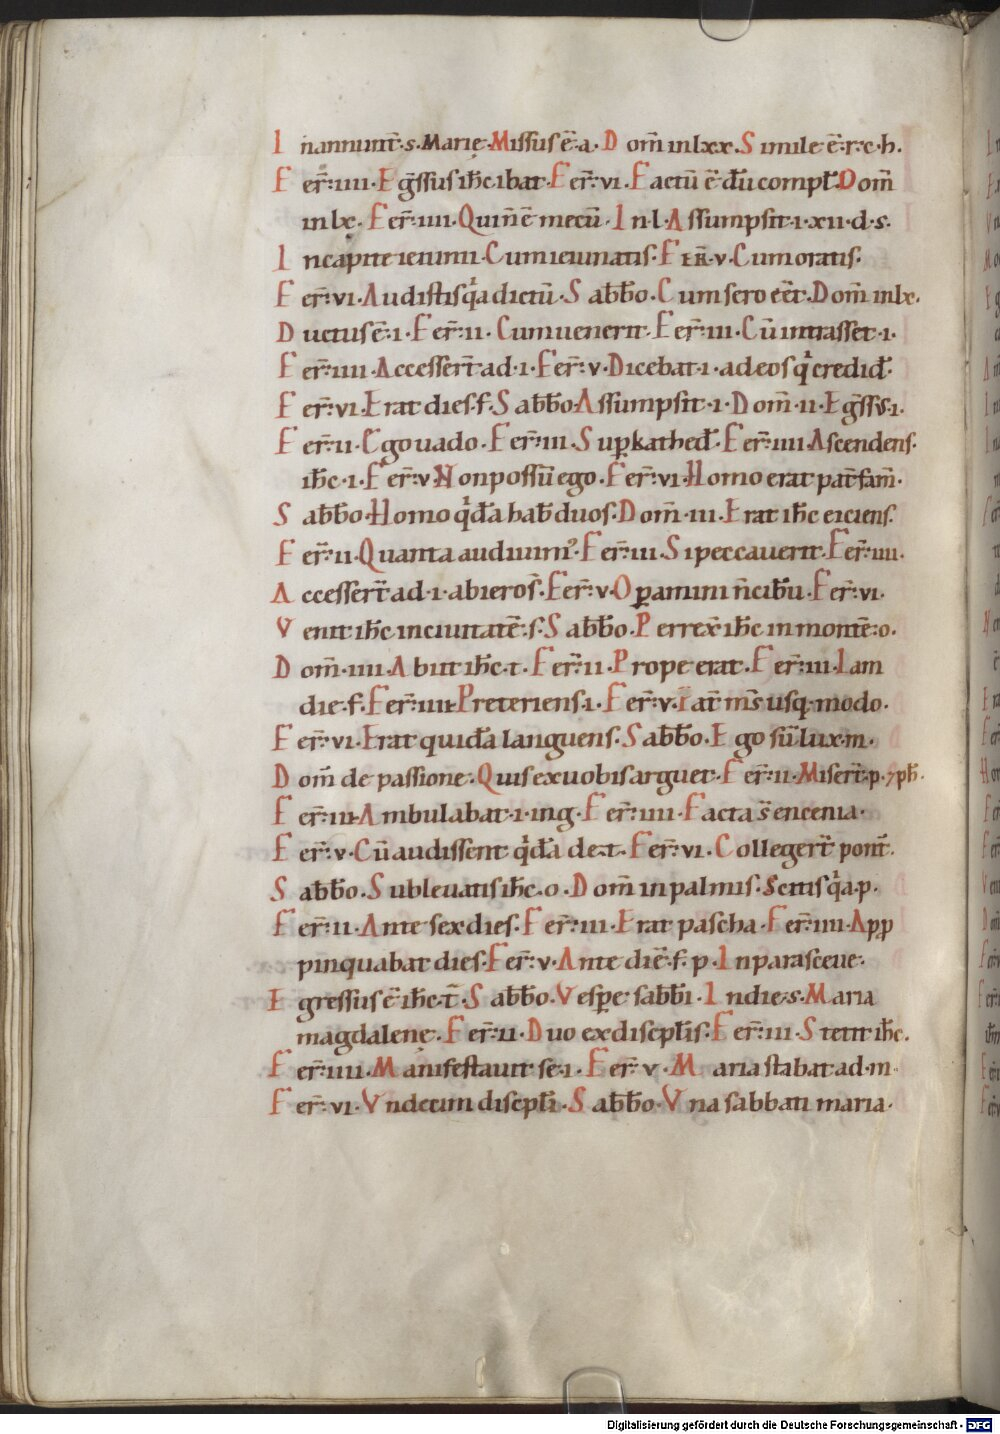 In annunt̄·s·Marię·Missus ē·a·Dom̄ in lxx·Simile ē·r·c·h·
Fer̄·iiii·Eḡssus ih̄c ibat·Fer̄·vi·Factū ē dū compl̄·Dom̄
in lx·Fer̄·iiii·Quin̄ ē mecū·In l·Assumpsit·i·xii·d·s·
In capite ieiunii·Cum ieiunatis·Fer̄·v·Cum oratis·
Fer̄·vi·Audistis q̄a dictū·Sabb̄o·Cum sero eēt·Dom̄ in lx·
Ductus ē·i·Fer̄·ii·Cum uenerit·Fer̄·iii·Cū intrasset·i·
Fer̄·iiii·Accesser̄t ad·i·Fer̄·v·Dicebat·i·ad eos q̄ credid̄·
Fer̄·vi·Erat dies·f·Sabb̄o·Assumpsit·i·Dom̄·ii·Eḡss̄s·i·
Fer̄·ii·Ego uado·Fer̄·iii·Sup̱ kathed̄·Fer̄·iiii·Ascendens·
ih̄c·i·Fer̄·v·Non possū ego·Fer̄·vi·Homo erat pat̄ fam̄·
Sabb̄o·Homo q̄dā hab̄ duos·Dom̄·iii·Erat ih̄c eiciens·
Fer̄·ii·Quanta audiuim᷒·Fer̄·iii·Si peccauerit·Fer̄·iiii·
Accesser̄t ad·i·ab ieros̄·Fer̄·v·Op̱amini n̄ cibū·Fer̄·vi·
Venit ih̄c in ciuitatē·s·Sabb̄o·Perrex̄ ih̄c in montē·o·
Dom̄·iiii·Abiit ih̄c·t·Fer̄·ii·Prope erat·Fer̄·iii·Iam
die·f·Fer̄·iiii·Preteriens·i·Fer̄·v·Pat̄ m̄s usq; modo·
Fer̄·vi·Erat quidā languens·Sabb̄o·Ego sū lux·m·
Dom̄ de passione·Quis ex uobis arguet·Fer̄·ii·Miser̄t·p·⁊ph̄·
Fer̄·iii·Ambulabat·i·in g·Fer̄·iiii·Facta s̄ encenia·
Fer̄·v·Cū audissent q̄dā de·t·Fer̄·vi·Colleger̄t pont̄·
Sabb̄o·Subleuatis ih̄c·o·Dom̄ in palmis·Scitis q̄a·p·
Fer̄·ii·Ante sex dies·Fer̄·iii·Erat pascha·Fer̄·iiii·App̱
pinquabat dies·Fer̄·v·Ante diē·f·p·In parasceue·
Egressus ē ih̄c·t̄·Sabb̄o·Vesp̱e sabb̄i·In die·s·Maria
magdalenę·Fer̄·ii·Duo ex discipl̄is·Fer̄·iii·Stetit ih̄c·
Fer̄·iiii·Manifestauit se·i·Fer̄·v·Maria stabat ad·m·
Fer̄·vi·Vndecim discipl̄i·Sabb̄o·Vna sabbati maria·
Digitalisierung gefördert durch die Deutsche Forschungsgemeinschaft - DFG